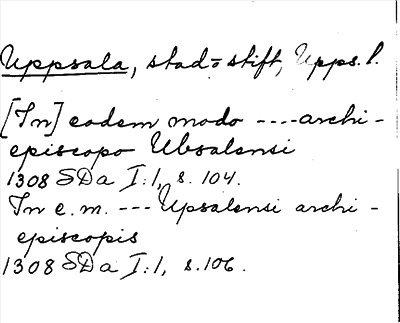 Uppsala, stad o stift, Upps. l.
[In] eodem modo ---- archi-
episcopo Ubsalensi
1308 SDa I:1, s. 104.
In e. m. --- Upsalensi archi-
episcopis
1308 SDa I:1, s. 106.